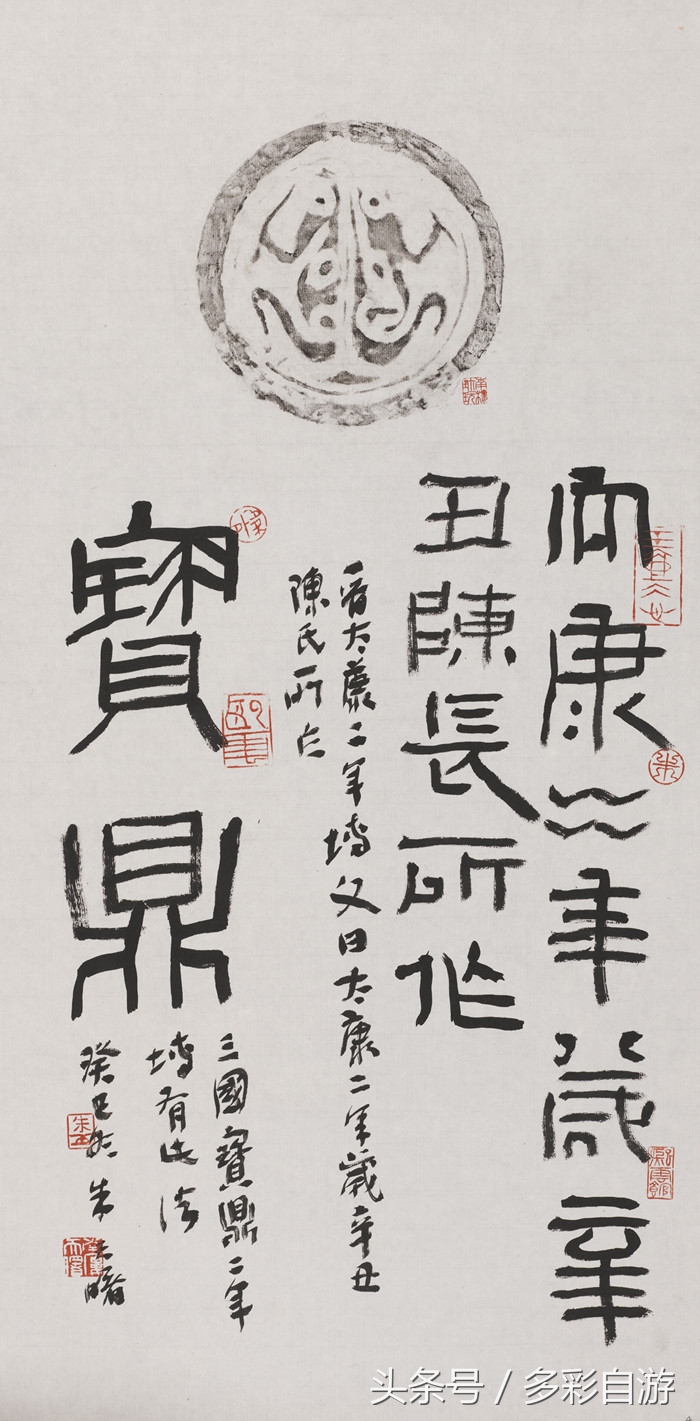 大康二年歲辛
丑陳長所作
晋太康二年塼文曰太康二年歲辛丑
陳氏所作
寶鼎
三國寶鼎二年
塼有此法
癸巳冬朱天曙
头条号 / 多彩自游